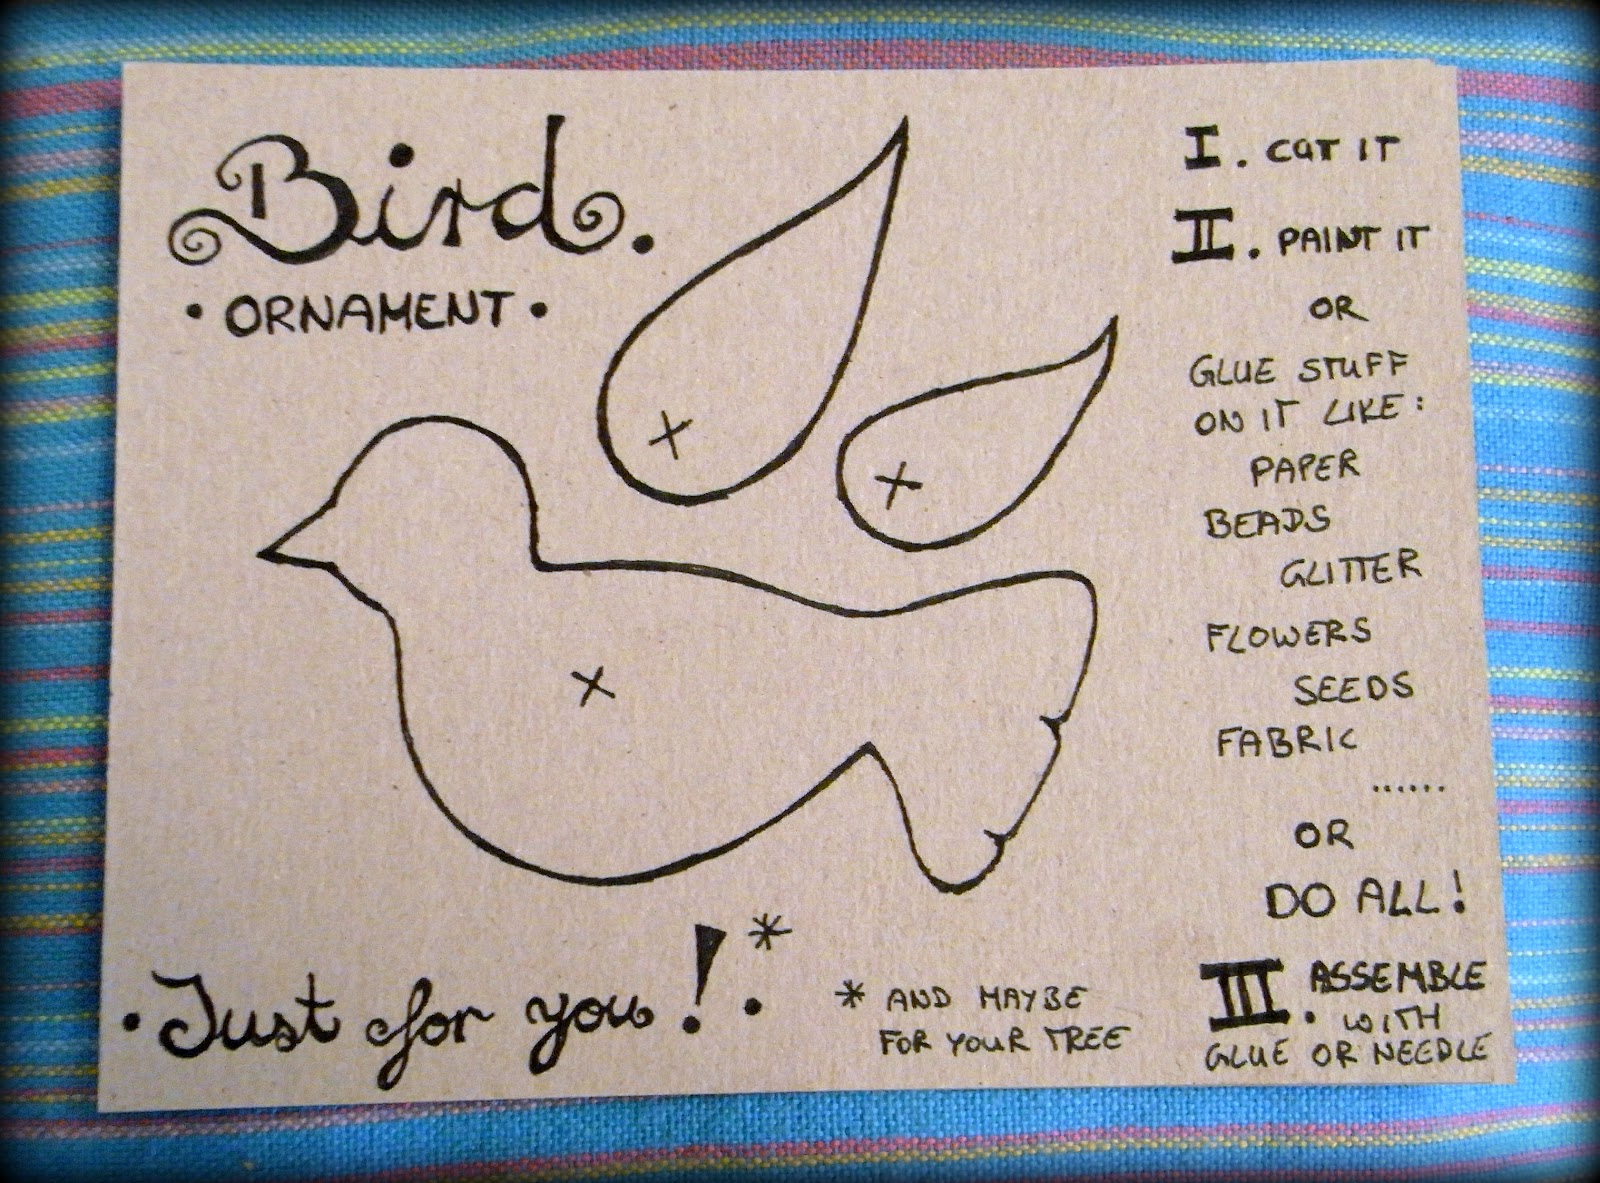 Bird.
• ORNAMENT •
I. CUT IT
II. PAINT IT
OR
GLUE STUFF
ON IT LIKE:
PAPER
BEADS
GLITTER
FLOWERS
SEEDS
FABRIC
......
OR
DO ALL!
III. ASSEMBLE
WITH
GLUE OR NEEDLE
• Just for you! * •
* AND MAYBE
FOR YOUR TREE